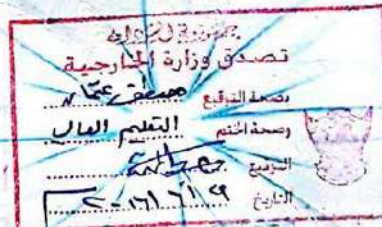 جمهورية العراق
تصدق وزارة الخارجية
بصحة التوقيع
وصحة الختم التعليم العالي
التوقيع
التاريخ ٢٠١٦/٦/٢٩